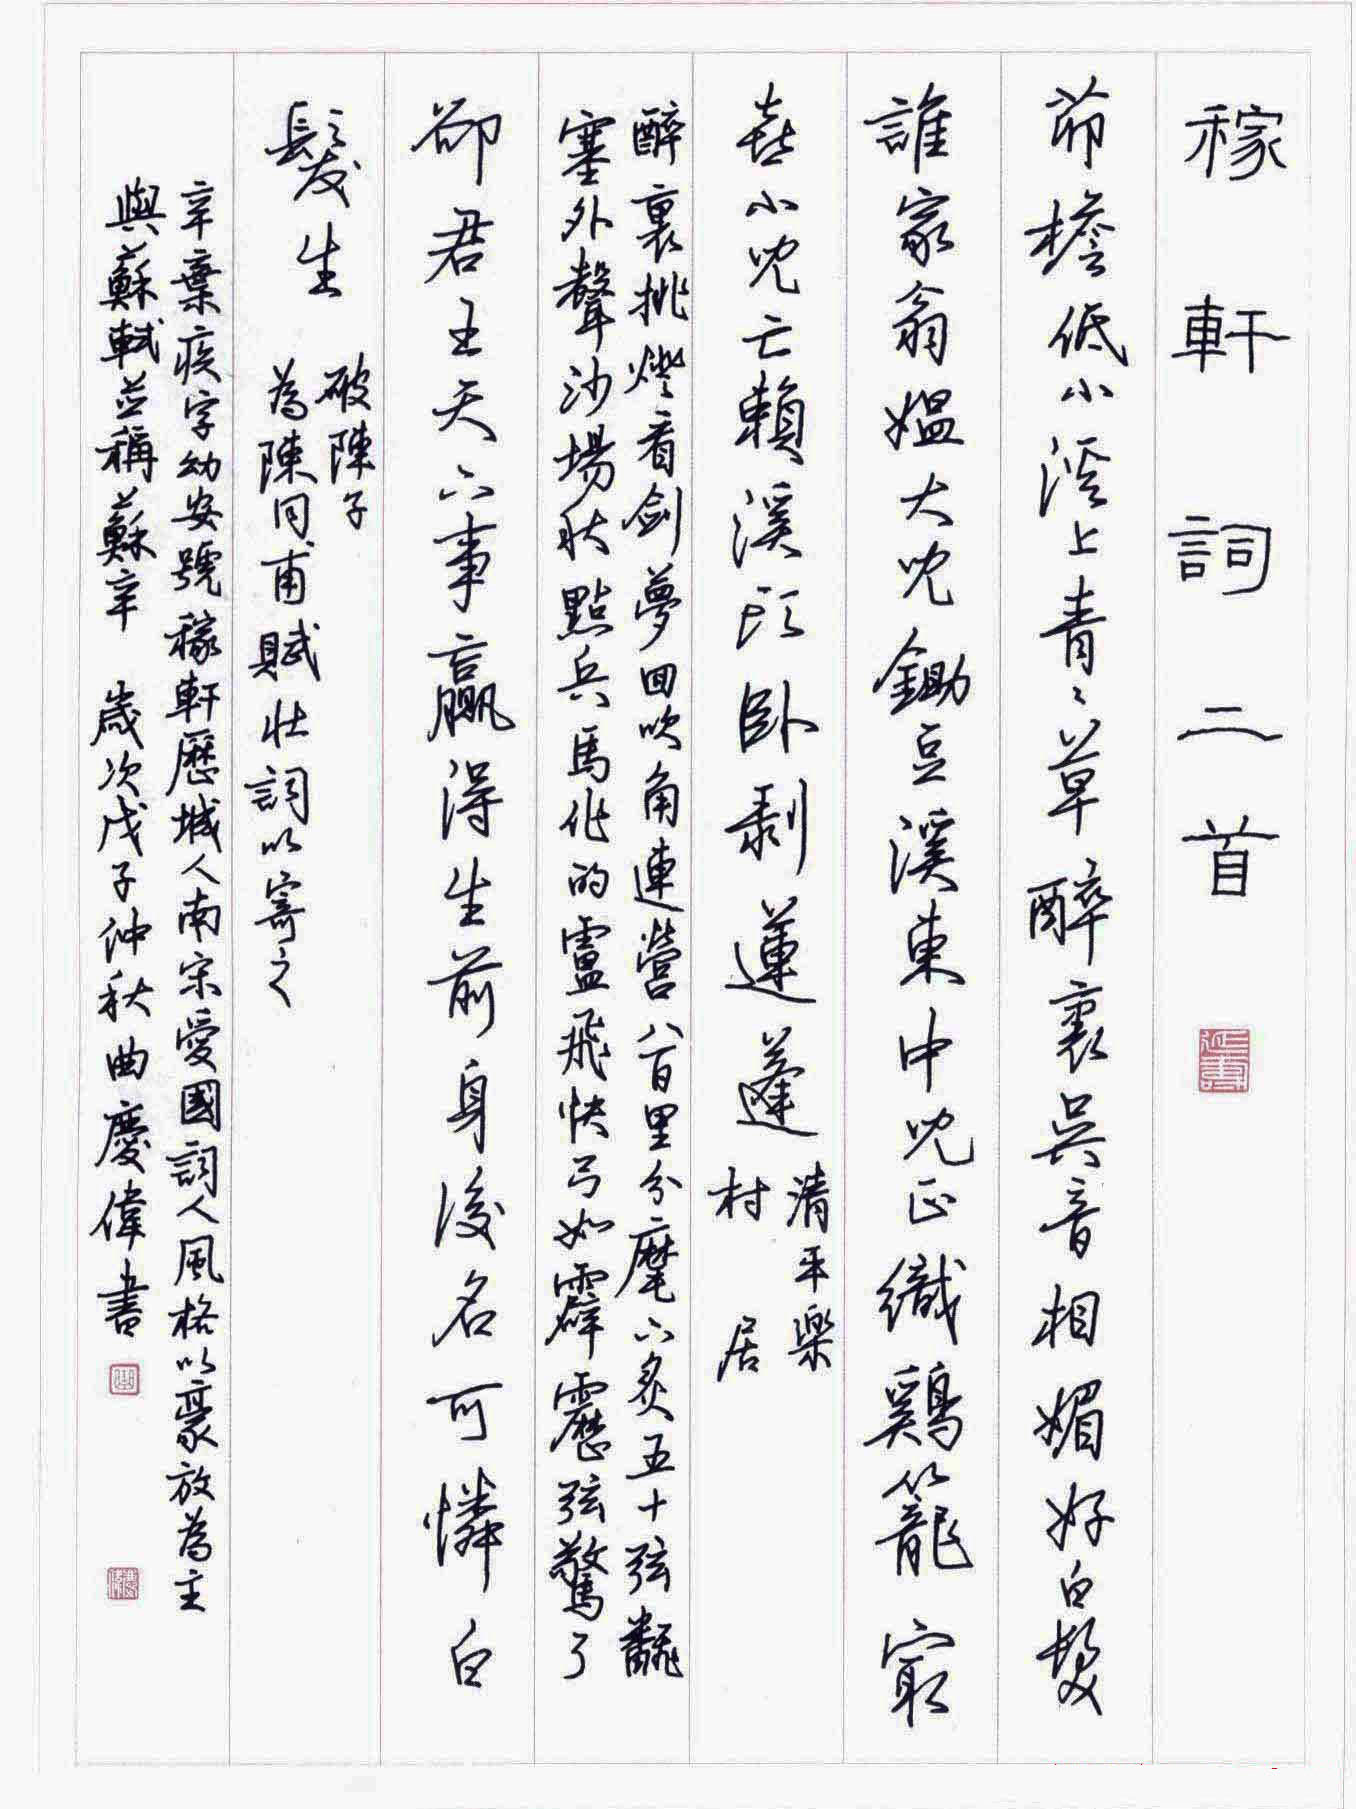 稼軒詞二首
茆檐低小溪上青〻草醉裏吳音相媚好白髮
誰家翁媼大兒鋤豆溪東中兒正織鷄籠窮
喜小兒亡賴溪頭卧剥蓮蓬
清平樂
村居
醉裏挑燈看劍夢回吹角連營八百里分麾下炙五十弦翻
塞外聲沙場秋點兵馬作的盧飛快弓如霹靂弦驚了
卻君王天下事贏得生前身後名可憐白
髮生
破陳子
為陳同甫賦壯詞以寄之
辛棄疾字幼安號稼軒歷城人南宋愛國詞人風格以豪放為主
與蘇軾並稱蘇辛 歲次戊子仲秋曲慶偉書